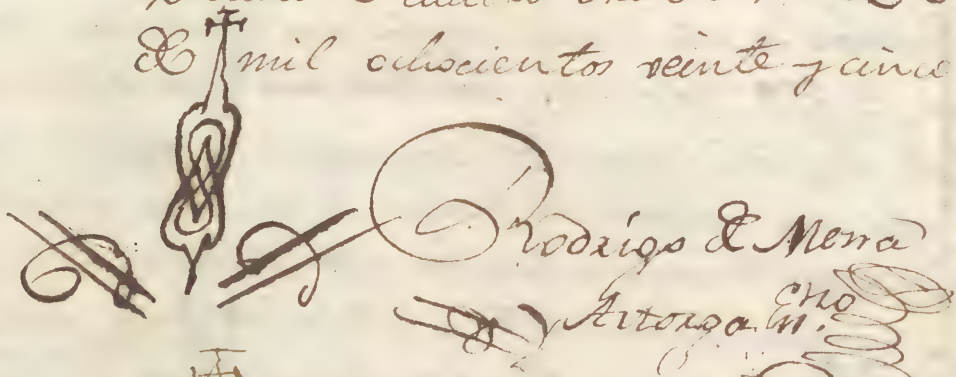 de mil ochocientos veinte y cinco
Rodrigo de Mena
Astorga